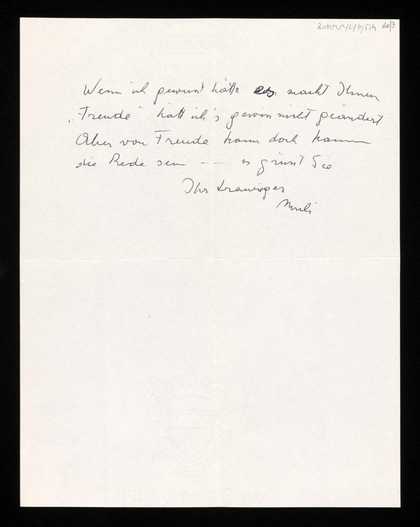 Wenn ich gewusst hätte es macht Ihnen
„Freude“ hätt ich's gewiss nicht geändert
Aber von Freude kann doch kaum
die Rede sein — — es grüsst Sie
Ihr trauriger